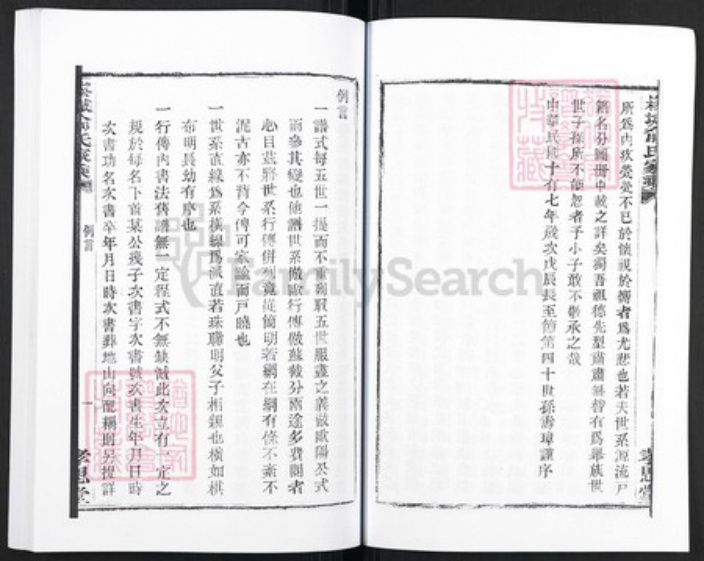 所爲內疚煢煢不已於懷視於譜者爲尤悲也若夫世系源流戶
籍名分譜冊中載之詳矣獨吾祖德先烈肅肅穆穆有爲舉族世
世子孫所不能忽者予小子敢不敬承之哉
中華民國十有七年歲次戊辰長至節第四十世孫壽璋謹序
孝思堂
例言
一譜式每五世一提而不重列取五世服盡之義倣歐陽公式
而參其變也他譜世系倣歐行傳倣蘇截分兩途多費閱者
心目茲將世系行傳併列竟從簡明若網在綱有條不紊不
泥古亦不背今俾可家諭而戶曉也
一世系直線爲系橫線爲派直若珠聯明父子相銜也橫如棋
布明長幼有序也
一行傳內書法舊譜無一定程式不無缺憾此次立有一定之
規於每名下首某公幾子次書字次書號次書生年月日時
次書功名次書卒年月日時次書葬地山向配耦則另提詳
例言
一
孝思堂
FamilySearch